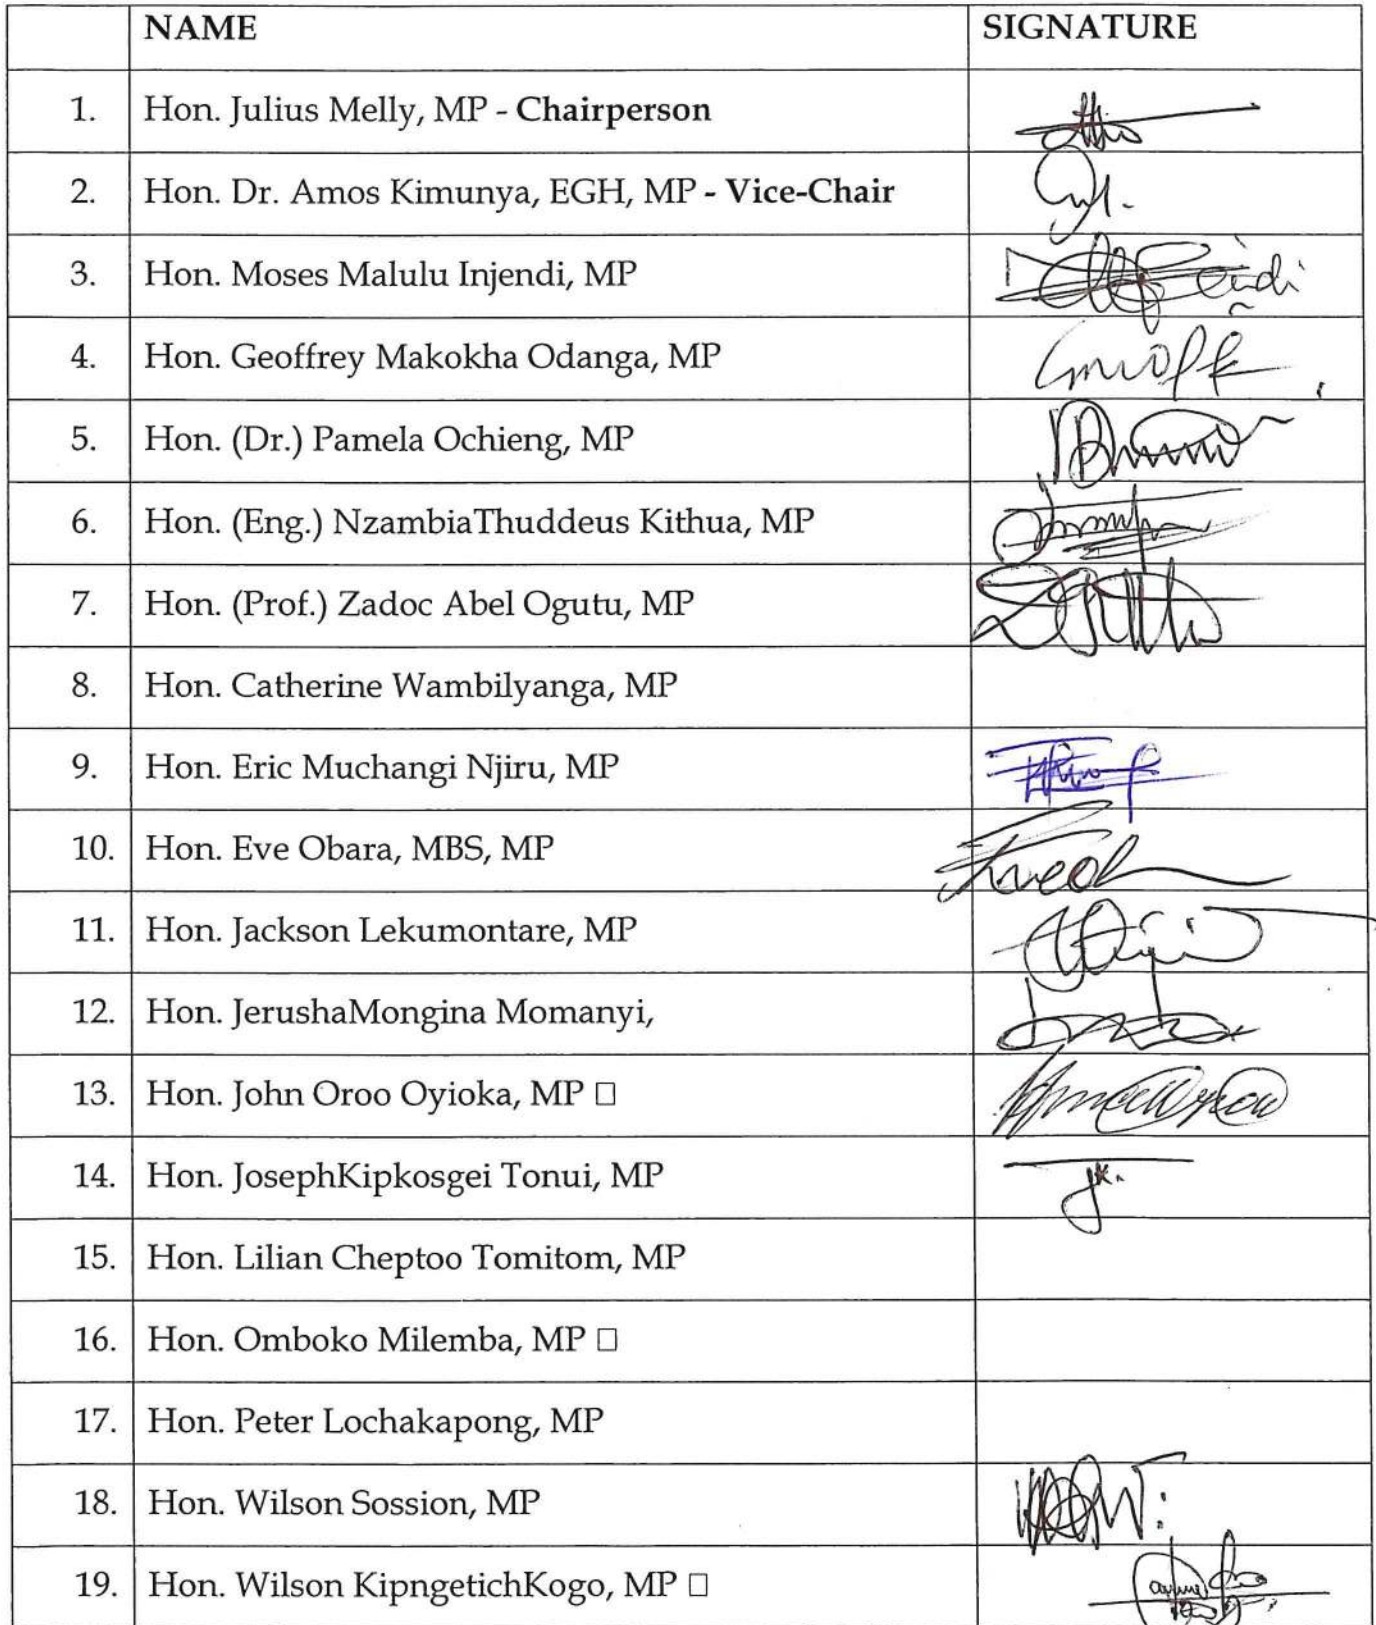 NAME SIGNATURE
1. Hon. Julius Melly, MP - Chairperson
2. Hon. Dr. Amos Kimunya, EGH, MP - Vice-Chair
3. Hon. Moses Malulu Injendi, MP
4. Hon. Geoffrey Makokha Odanga, MP
5. Hon. (Dr.) Pamela Ochieng, MP
6. Hon. (Eng.) NzambiaThuddeus Kithua, MP
7. Hon. (Prof.) Zadoc Abel Ogutu, MP
8. Hon. Catherine Wambilyanga, MP
9. Hon. Eric Muchangi Njiru, MP
10. Hon. Eve Obara, MBS, MP
11. Hon. Jackson Lekumontare, MP
12. Hon. JerushaMongina Momanyi,
13. Hon. John Oroo Oyioka, MP □
14. Hon. JosephKipkosgei Tonui, MP
15. Hon. Lilian Cheptoo Tomitom, MP
16. Hon. Omboko Milemba, MP □
17. Hon. Peter Lochakapong, MP
18. Hon. Wilson Sossion, MP
19. Hon. Wilson KipngetichKogo, MP □